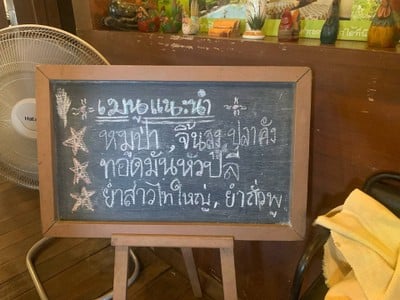 เมนูแนะนำ
หมูป่า, จิ้นลุง, ปลาคัง
ทอดมันหัวปลี
ยำสาวไทใหญ่, ยำถั่วพู
Hata